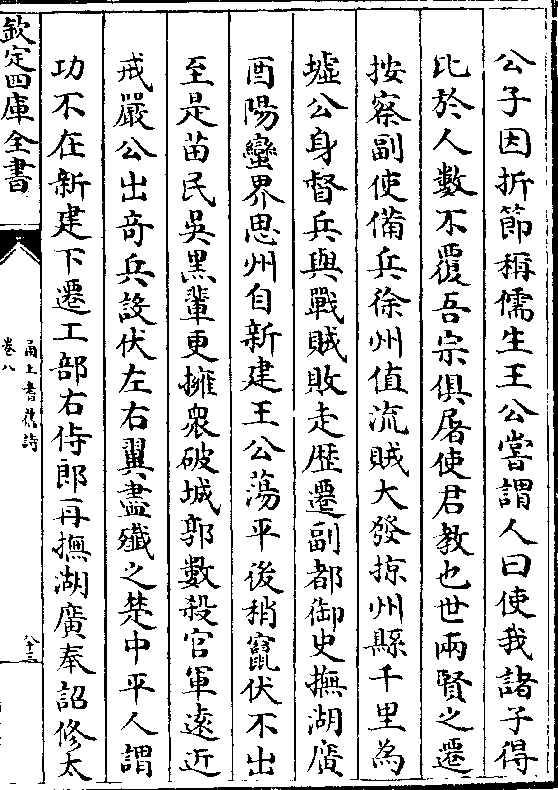 公子因折節稱儒生王公嘗謂人曰使我諸子得
比於人數不覆吾宗俱屠使君教也世兩賢之遷
按察副使備兵徐州值流賊大發掠州縣千里為
墟公身督兵與戰賊敗走歴遷副都御史撫湖廣
酉陽蠻界思州自新建王公蕩平後稍竄伏不出
至是苗民吳黑輩更擁衆破城郭數殺官軍逺近
戒嚴公出竒兵設伏左右翼盡殱之楚中平人謂
功不在新建下遷工部右侍郎再撫湖廣奉詔修太
欽定四庫全書
甬上耆舊詩
卷八